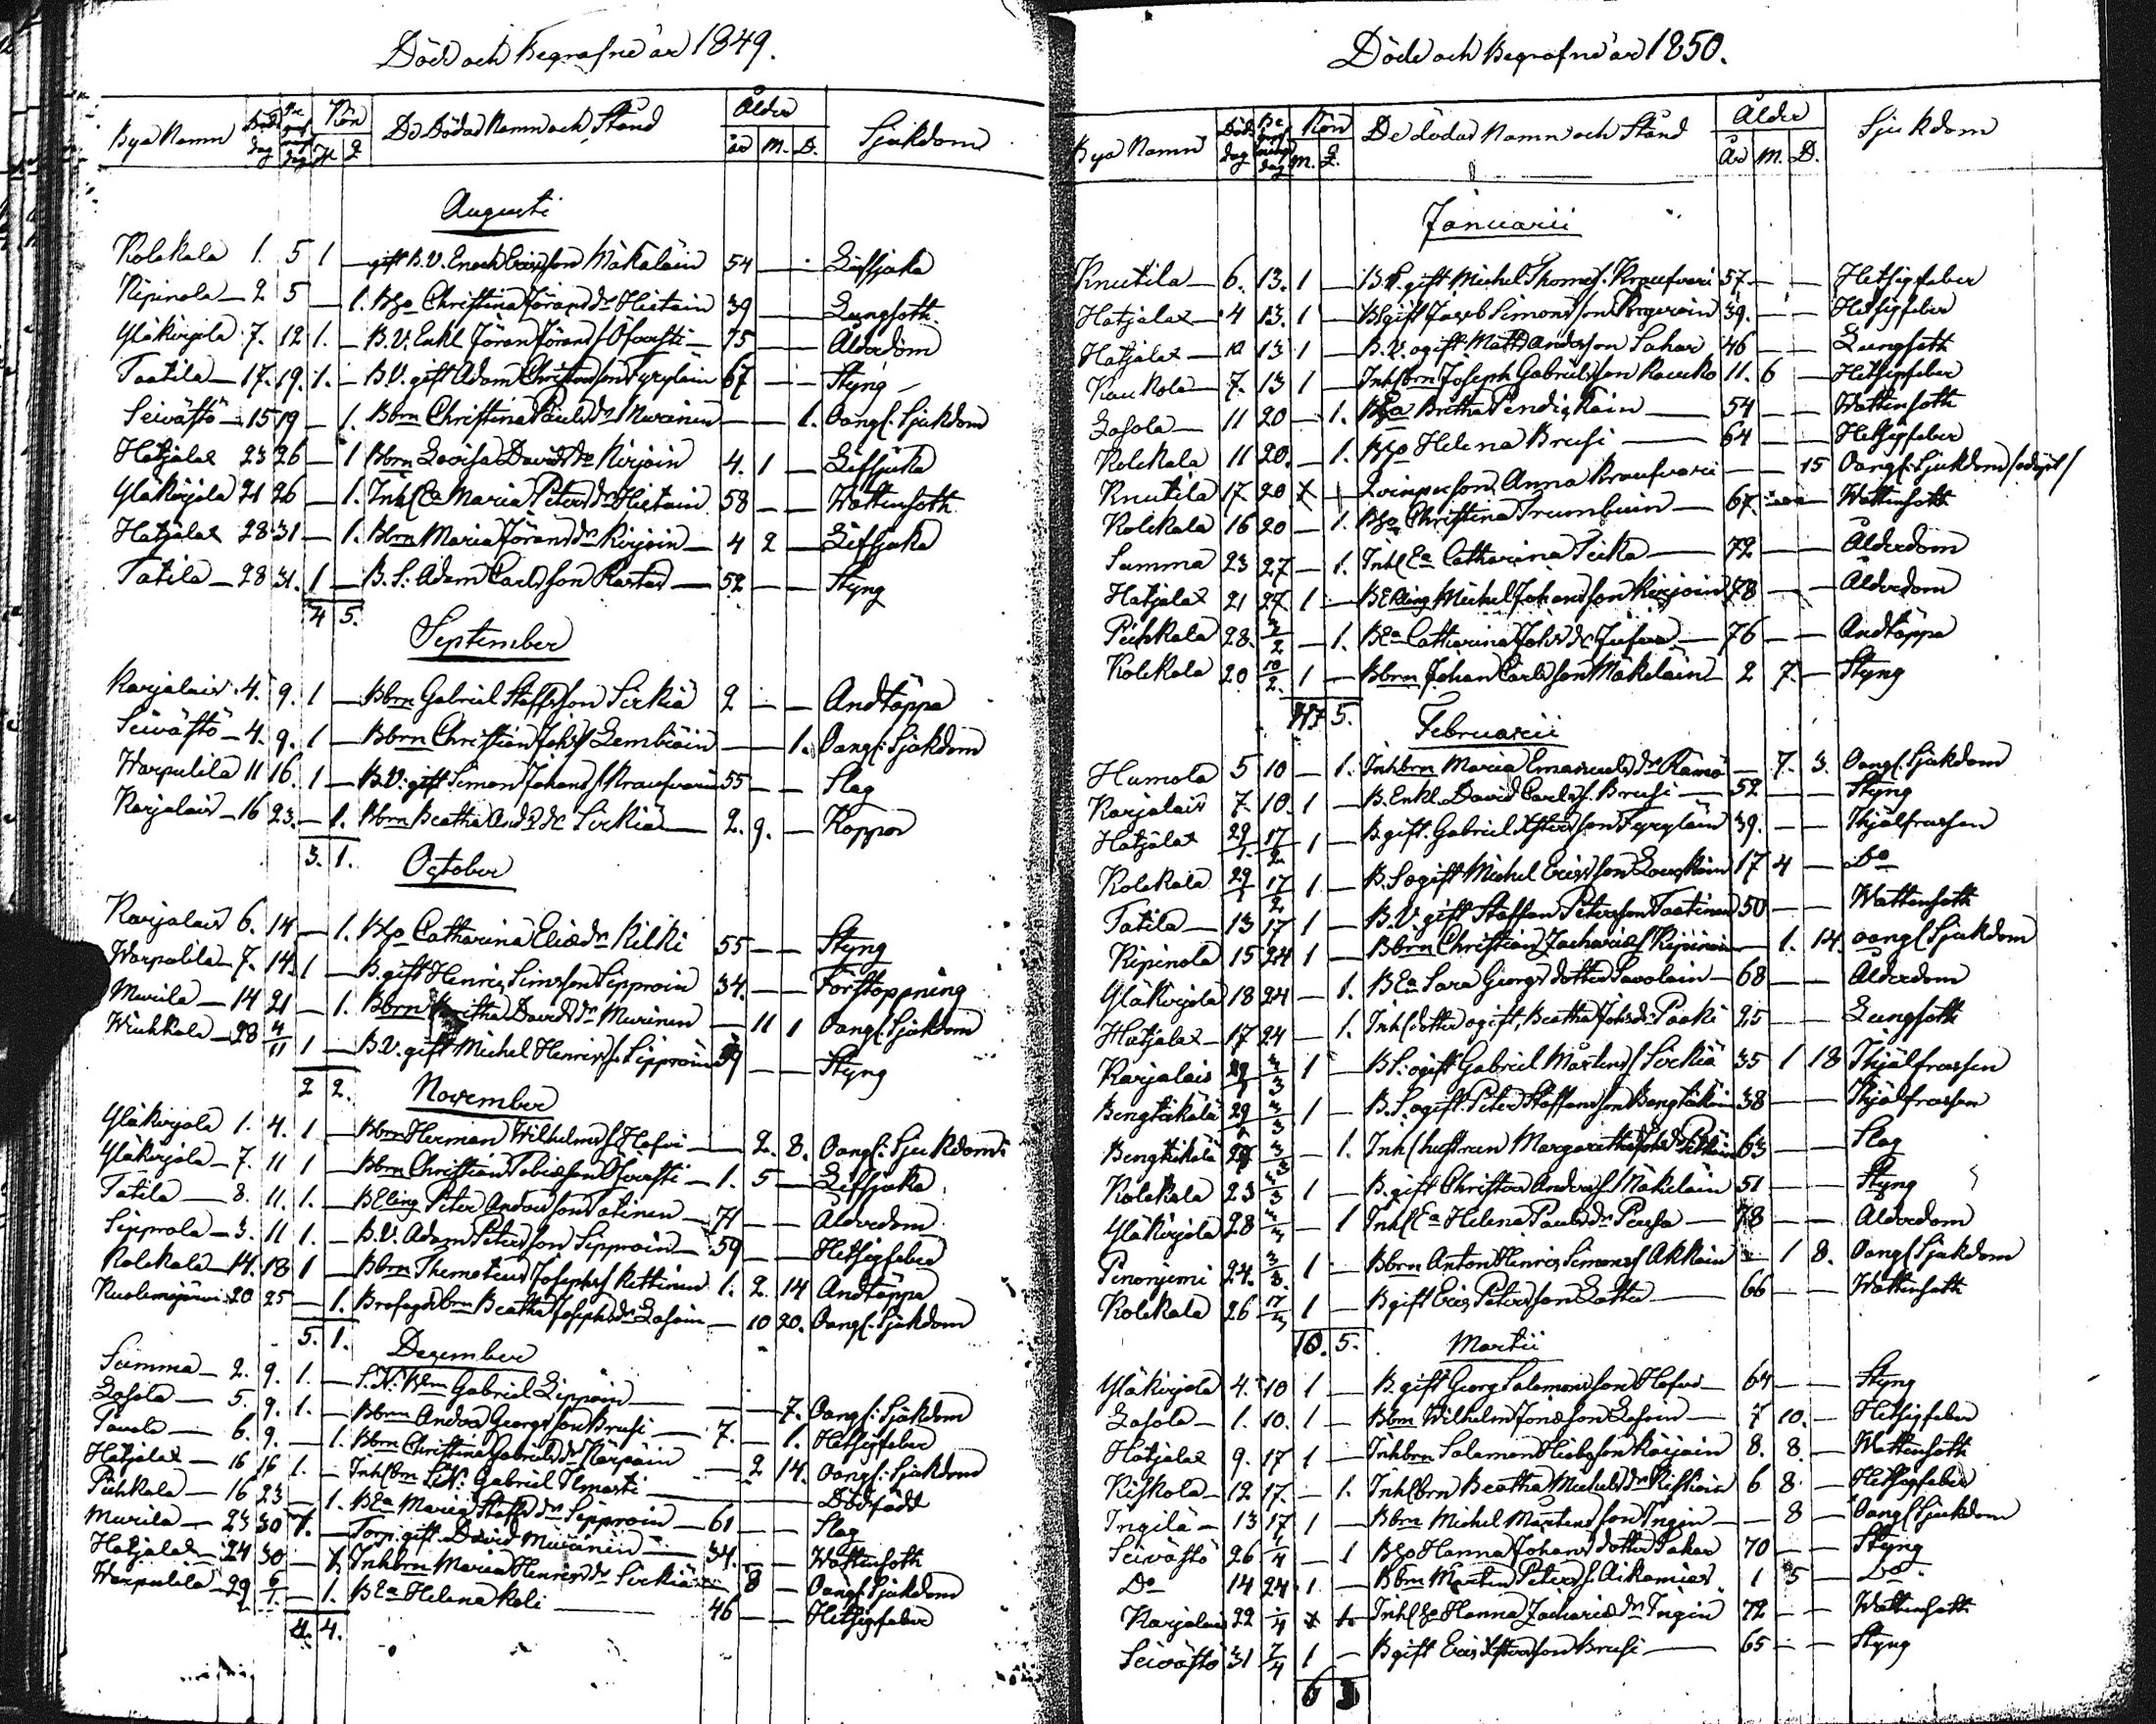 Död och Begrafne år 1849.
Bya Namn Död dag Be grafn dag Kön M Q De Dödas Namn och Stånd Ålder år M. D. Sjukdom
Augusti
Kolckala 1. 5 1 — gift B.V. Enoch Ericsson Mäkäläin 54 — — Lifsjuka
Pipinola — 2 5 — 1. Bho Christina Jörans dr Hietain 39 — — Lungsoth
Yläkirjola 7. 12 1. — B.V. Enkl Jöran Jörans/ — 75 — — Ålderdom
Taatila — 17. 19. 1. — B.V. gift Adam Christersson Tyryläin 67 — — Styng
Seivästö — 15 19 — 1. Bbrn Christina Pauls dr Muranen — — 1. Oangf. Sjukdom
Hatjalax 23 26 — 1 Bbrn Lovisa Davids dr Kirjoin 4. 1 — Lifsjuka
Yläkirjola 21 26 — 1. Inhs Ea Maria Peters dr Hietain 58 — — Wattensoth
Hatjalax 28 31 — 1. Bbrn Maria Jörans dr Kirjoin — 4 2 — Lifsjuka
Tatila — 28 31. 1 — B.S. Adam Carlsson Rastas — 52 — — Styng
4 5.
September
Karjalais 4. 9. 1 — Bbrn Gabriel Staffsson Sirkiä 2 — — Andtäppa
Seivästö — 4. 9. 1 — Bbrn Christian Johs/ Lembiäin — — 1. Oangf. Sjukdom
Warpulila 11 16. 1 — B.V. gift Simon Johans/ Kraufvari 55 — — Slag
Karjalais — 16 23. — 1. Bbrn Beatha And. dr Sirkiä — 2. 9. — Koppor
3. 1.
October
Karjalais 6. 14 — 1. Bho Catharina Elias dr Kilki 55 — — Styng
Warpulila — 7. 14. 1 — B. gift Henric Simsson Sipproin 34. — — Förstoppning
Murila — 14 21 — 1. Bbrn Davids dr Murinen — 11 1 Oangf. Sjukdom
28 4/11 1 — B.V. gift Michel Henrics/ Sipproin 39 — — Styng
2 2.
November
Yläkirjola 1. 4. 1 — Bbrn Herman Wilhelms/ Hofvi — 2. 8. Oangf. Sjukdom
Yläkirjola — 7. 11 1 — Bbrn Christian Tobiasson — 1. 5 — Lifsjuka
Tatila — 8. 11. 1. — BEling Peter Andersson Tatinen — 71 — — Ålderdom
Sipprola — 3. 11 1. — B.V. Adam Petersson Sipproin — 59 — — Hetsigfeber
Kolckala — 14. 18 1 — Bbrn Themoteus Josephs/ Kettinen 1. 2. 14 Andtäppa
Kuolemajärvi 20 25 — 1. Brofogds brn Beatha Josephs dr Lasoin — 10 20. Oangf. Sjukdom
5. 1.
December
Summa — 2. 9. 1. — S.N. Gabriel Lippoin — — 7. Oangf. Sjukdom
Lasola — 5. 9. 1. — Bbrn Anders Georgsson Brusi — 7. — 1. Hetsigfeber
6. 9. — 1. Bbrn Christina Gabriels dr Kärpäin — 2 14. Oangf. Sjukdom
Hatjalax — 16 16 1. — Inhs brn Gabriel Ilmasti — Dödfödd
Pihkala — 16 23 — 1. BEa Maria Staffs dr Sipproin — 61 — — Slag
Murila — 23 30 1. — Torp. gift David Murinin — 34. — — Wattensoth
Hatjalax — 24 30 — 1. Inhbrn Maria Henrics dr Sirkiä — 8 — Oangf. Sjukdom
Warpulila — 29 6/1 — 1. BEa Helena Koli — 46 — — Hetsigfeber
4. 4.
Döde och Begrafne år 1850.
Bya Namn Död dag Be grafnings dag Kön M. Q. De dödas Namn och Stånd Ålder År M. D. Sjukdom
Januarii
Knutila — 6. 13. 1 — B.V. gift Michel Thomas/ Kraufvari 57. — — Hetsigfeber
Hatjalax — 4 13. 1 — B gift Jacob Simonsson 39. — — Hetsigfeber
Hatjalax — 13 1 — B.V. ogift Matts Andersson Lahar 46 — — Lungsoth
Kaukola — 7. 13 1 — Inhs brn Joseph Gabrielsson Raucko 11. 6 — Hetsigfeber
Lasola — 11 20 — 1. BEa Bretha Pendickäin — 54 — — Wattensoth
Kolckala 11 20. — 1. Bho Helena Brusi — 64 — — Hetsigfeber
Knutila 17 20 Qvinperson Anna Kraufvari — — 15 Oangf. Sjukdom
Kolckala 16 20 — 1. Bho Christina Trumbuin — 67. — Wattensoth
Summa 23 27 — 1. Inhs Ea Catharina Peika — 72 — — Ålderdom
Hatjalax 21 27 1 — BEkling Michel Johansson Kirjoin 78 — — Ålderdom
Pihkala 28. 3/2 — 1. BEa Catharina Johs dr — 76 — — Andtäppa
Kolckala 20 10/2. 1 — Bbrn Johan Carlsson Mäkeläin — 2 7. — Styng
7 5.
Februarii
Humola 5 10 — 1. Inhbrn Maria Emanuels dr Rämö — 7. 3. Oangf. Sjukdom
Karjalais 7. 10. 1 — B. Enkl. David Carls/. Brusi — 52 — — Styng
Hatjalax 29/1 17/2 1 — B gift. Gabriel Christersson Tyryläin 39. — — Ihjälfrusen
Kolckala 29/1 17/2 1. — B.S. ogift Michel Ericsson Louckäin 17 4 — Do
Tatila — 13 17 1 — B.V. gift Staffan Petersson Taatinen 50 — — Wattensoth
Pipinola 15 24 1 — Bbrn Christian Zacharias/ Pipinoin — 1. 14. oangf Sjukdom
Yläkirjola 18 24 — 1. BEa Sara Georgs dotter Savolain — 68 — — Ålderdom
Hatjalax — 17 24 — 1. Inhs dotter ogift, Beatha Johs dr Paaki 25 — — Lungsoth
Karjalais 3/3 1 — B.S. ogift Gabriel Mårtens/ Sirkiä 35 1 18 Ihjälfrusen
Bengtäkälä 29 3/3 1 — B.S. ogift. Peter Staffansson Bengtäkäin 38 — — Ihjälfrusen
Bengtäkälä 3/3 — 1. Inhs hustrun Margaretha 63 — — Slag
Kolckala 23 3/3 1 — B. gift Christer Anders/ Mäkeläin 51 — — Styng
Yläkirjola 28 3/3 — 1 Inhs Ea Helena Pauls dr Peusa — 78 — — Ålderdom
Penonjemi 24. 3/3. 1 — Bbrn Anton Henric Simons/ Akkain — 1 8. Oangf Sjukdom
Kolckala 26 17/3 1 — B gift Eric Petersson Latta — 66 — — Wattensoth
10. 5.
Martii
Yläkirjola 4. 10 1 — B. gift Georg Salomonsson Hofvi — 64 — — Styng
Lasola — 1. 10. 1 — Bbrn Wilhelm Jonasson Lasoin — 7 10. — Hetsigfeber
Hatjalax 9. 17 1 — Inhbrn Salomon Kirjoin 8. 8. — Wattensoth
Kiskola — 12 17. — 1. Inhs brn Beatha Michels dr Kiskoin 6 8 — Hetsigfeber
Ingilä — 13 17 1 — Bbrn Michel Mårtensson Ingin — — 8 — Oangf Sjukdom
Seivästö 26 1/4 — 1 Bho Hanna Johans dotter Pakar 70 — — Styng
Do 14 24 1 — Bbrn Mårten Peters/. Aikamies 1 5 — Do.
Karjalais 22 1/4 Inhs ho Hanna Zacharias dr Ingin 72 — — Wattensoth
Seivästö 31 7/4 1 — B gift Eric Christersson Brusi — 65 — — Styng
6 3